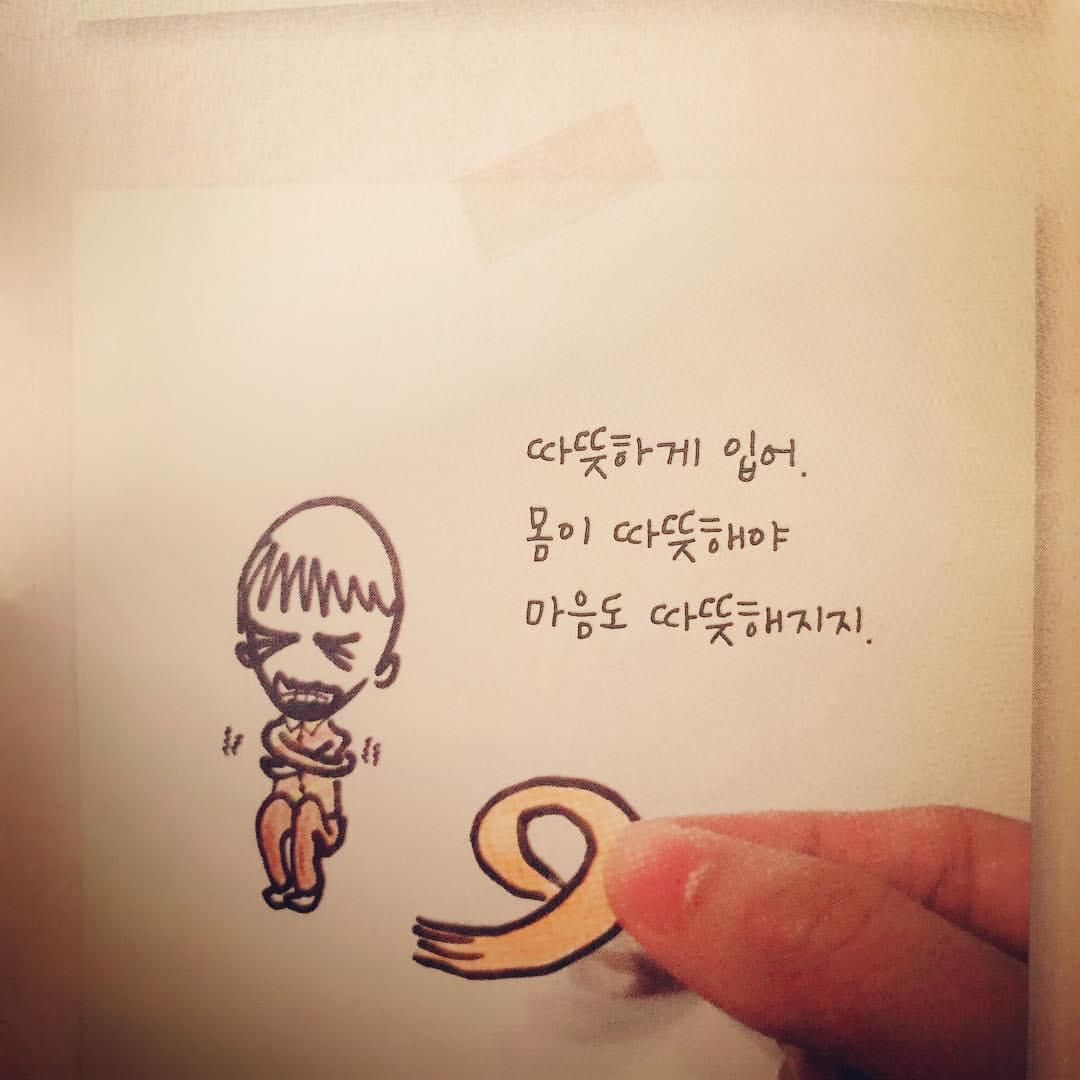 따뜻하게 입어.
몸이 따뜻해야
마음도 따뜻해지지.